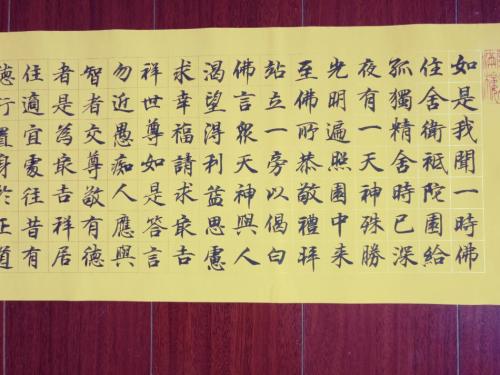 如是我聞一時佛
住舍衛祗陀園給
孤獨精舍時已深
夜有一天神殊勝
光明遍照園中来
至佛所恭敬禮拜
站立一旁以偈白
佛言眾天神與人
渴望得利益思慮
求幸福請求最吉
祥世尊如是答言
勿近愚痴人應與
智者交尊敬有德
者是為最吉祥居
住適宜處往昔有
德行置身於正道